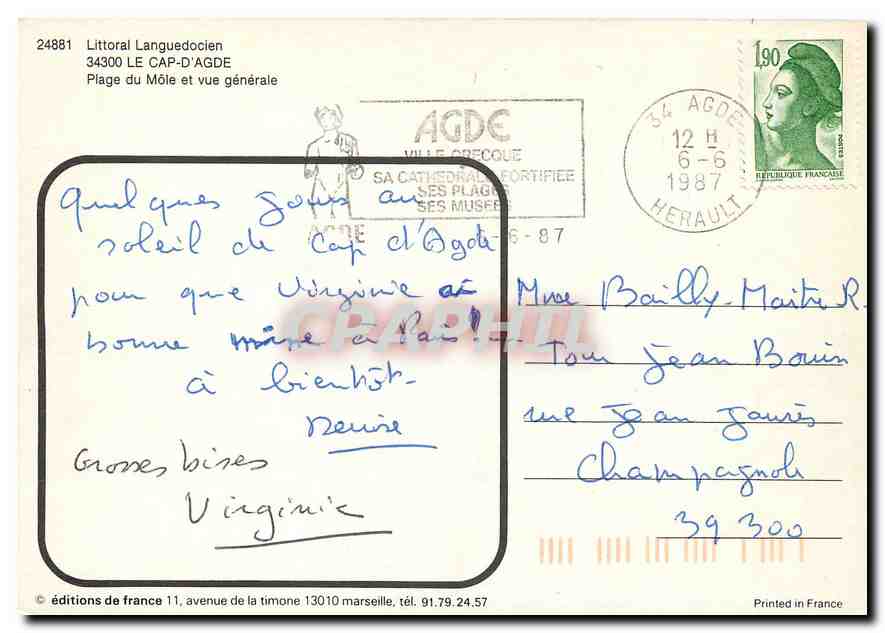 24881 Littoral Languedocien
34300 LE CAP-D'AGDE
Plage du Môle et vue générale
AGDE
VILLE GRECQUE
SA CATHEDRALE FORTIFIEE
SES PLAGES
SES MUSEES
AGDE
-6-87
34 AGDE
12 H
6-6
1987
HERAULT
1,90
POSTES
REPUBLIQUE FRANÇAISE
Quelques jours au
soleil de Cap d'Agde
pour que Virginie ai
bonne mine à Paris!
à bientôt-
Denise
Grosses bises
Virginie
CPAPHIL
Mme Bailly-Maitre R.
Tour Jean Bouin
rue Jean Jaurès
Champagnole
39 300
© éditions de france 11, avenue de la timone 13010 marseille, tél. 91.79.24.57
Printed in France